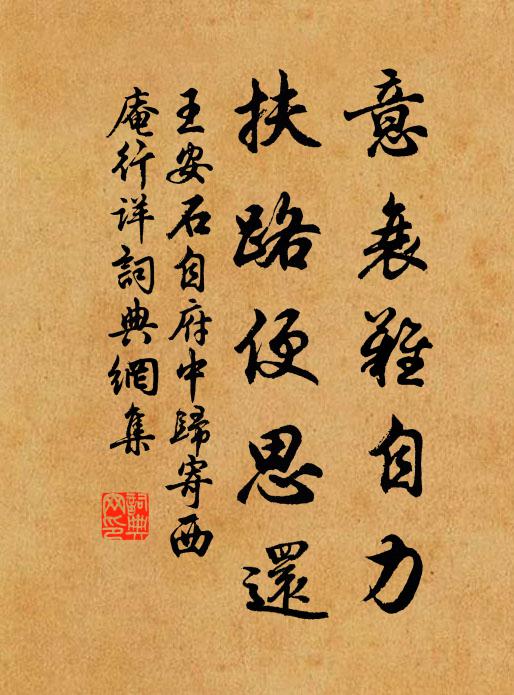 意衰難自力
扶路便思還
王安石自府中歸寄西
庵行詳詞典網集
詞典
网印